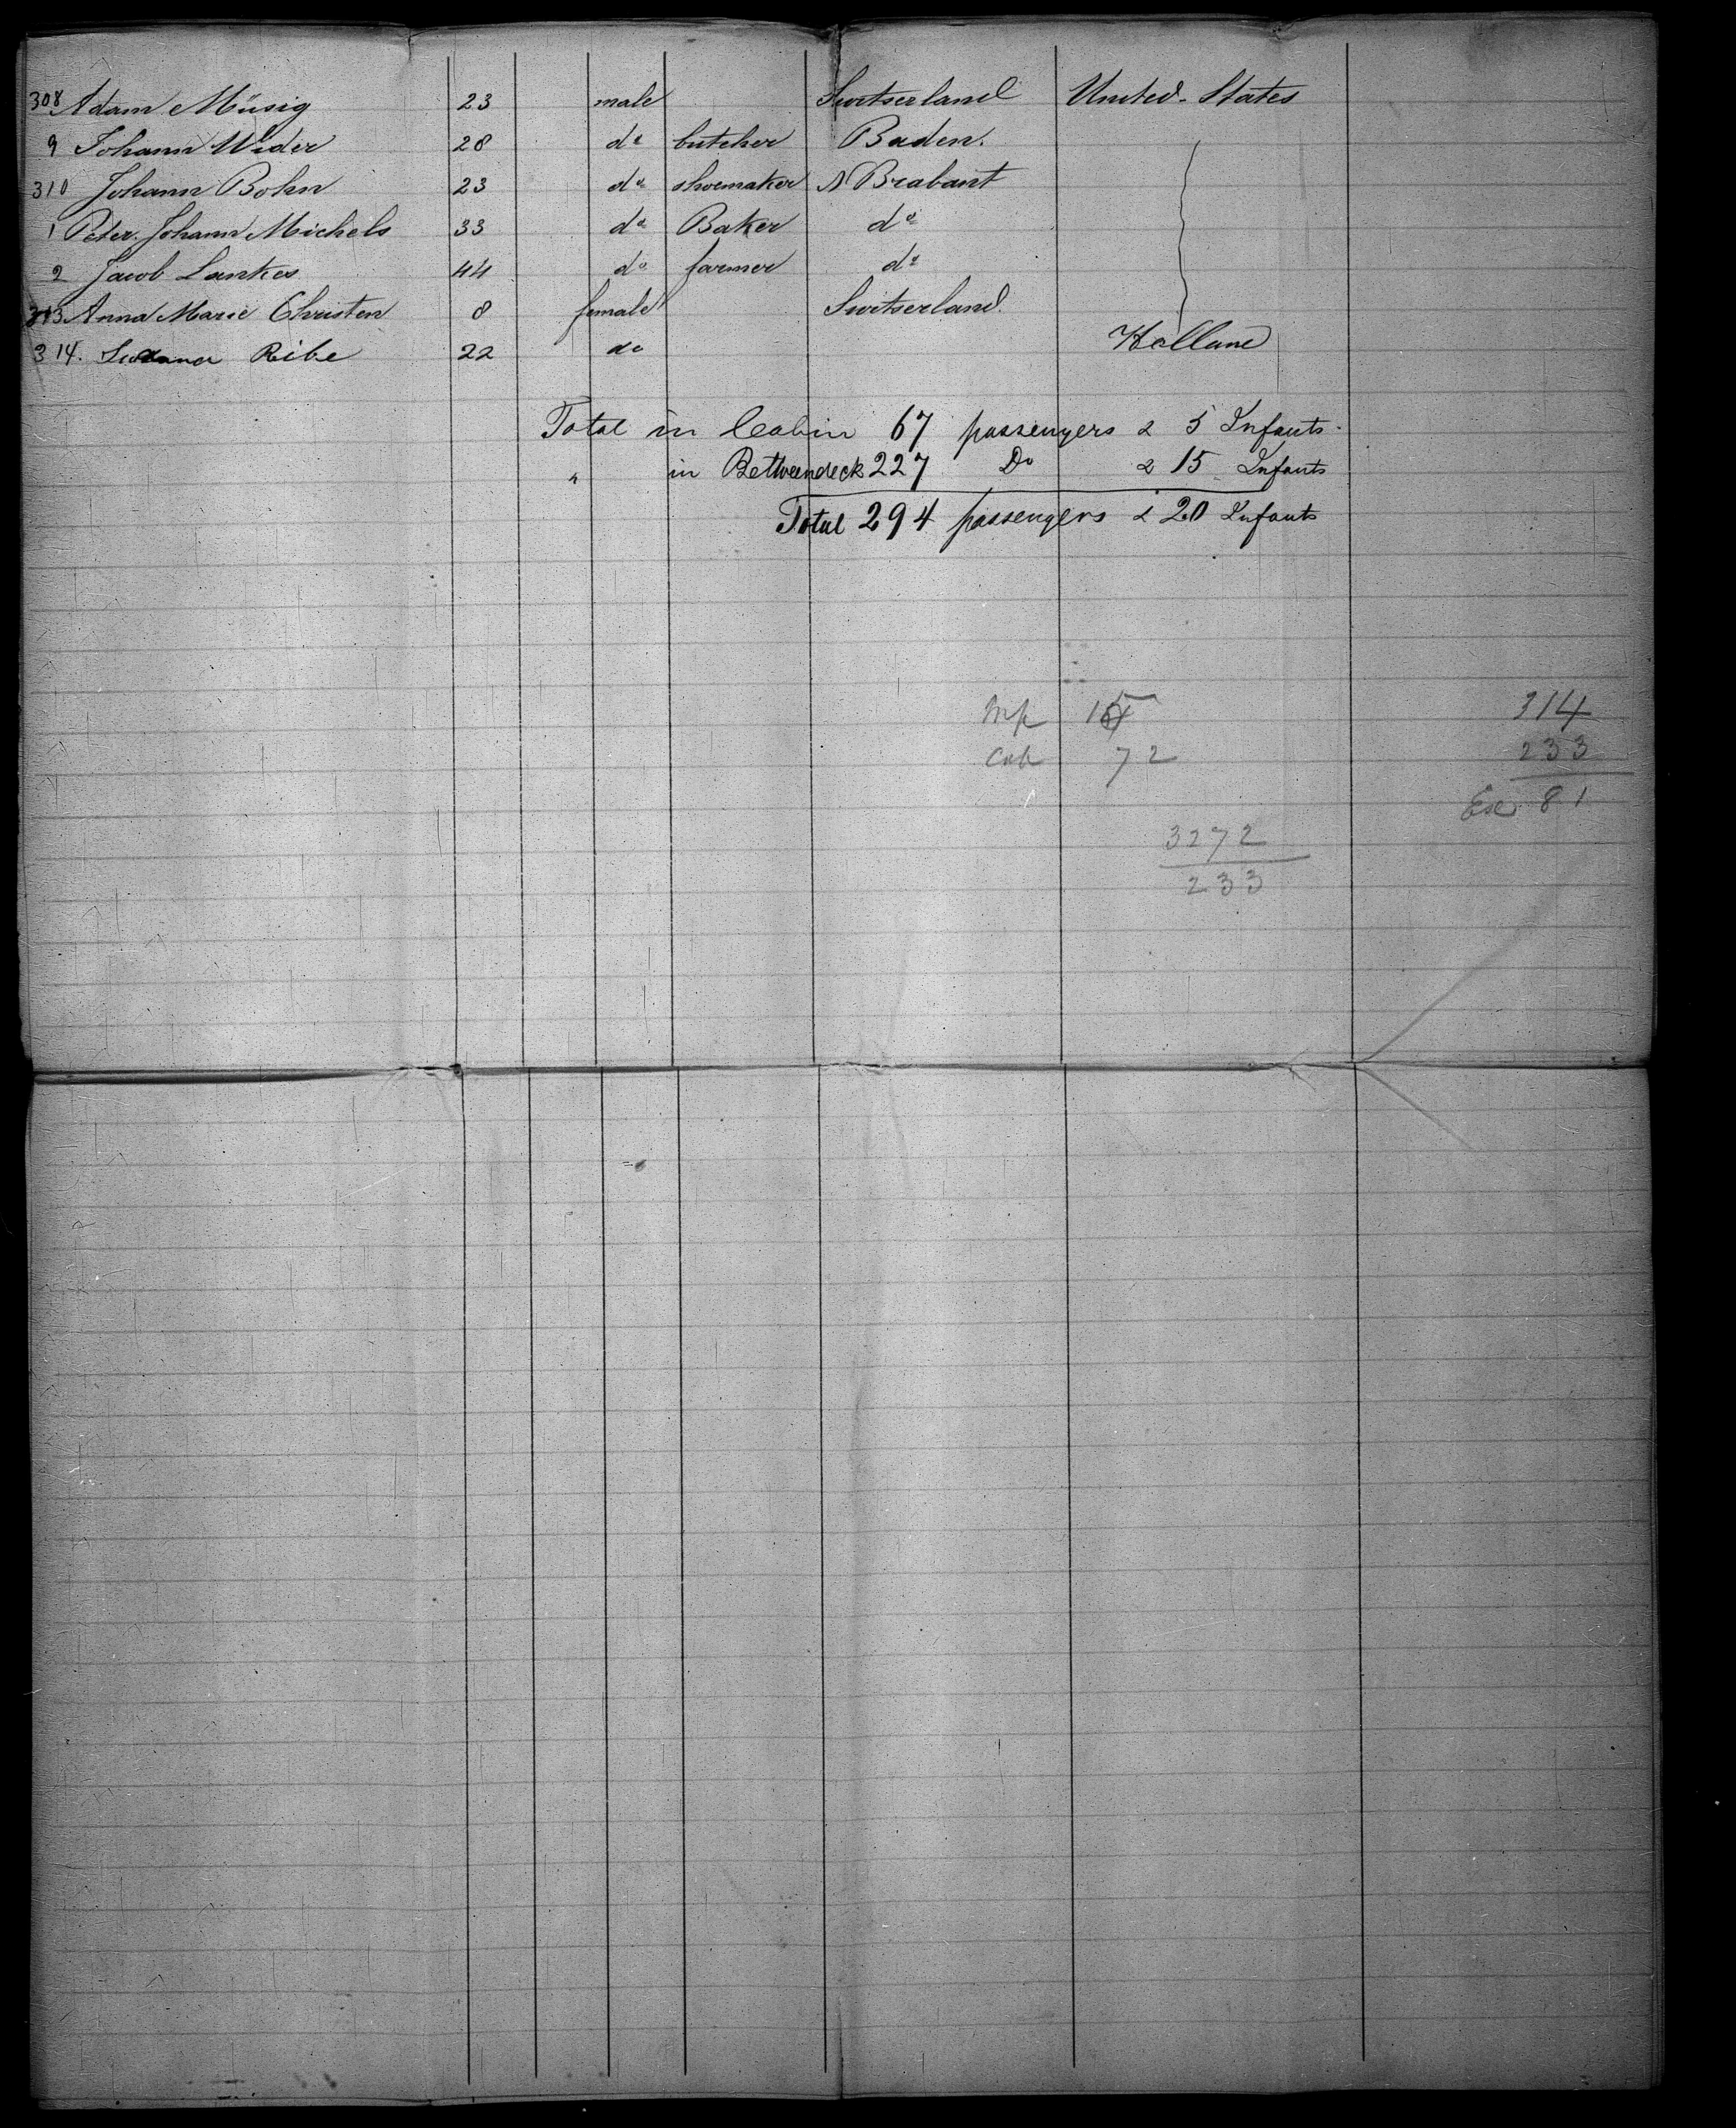 308 Adam Müsig 23 male Switserland United-States
9 Johann Wider 28 do butcher Baden.
310 Johann Bohn 23 do shoemaker N Brabant
1 Peter Johann Michels 33 do Baker do
2 Jacob Lankes 44 do farmer do
313 Anna Marie Christen 8 female Switserland.
314. Ribe 22 do Holland
Total in Cabin 67 passengers & 5 Infants.
" in Betweendeck 227 Do & 15 Infants
Total 294 passengers & 20 Infants
314
Cab 72 233
81
3272
233